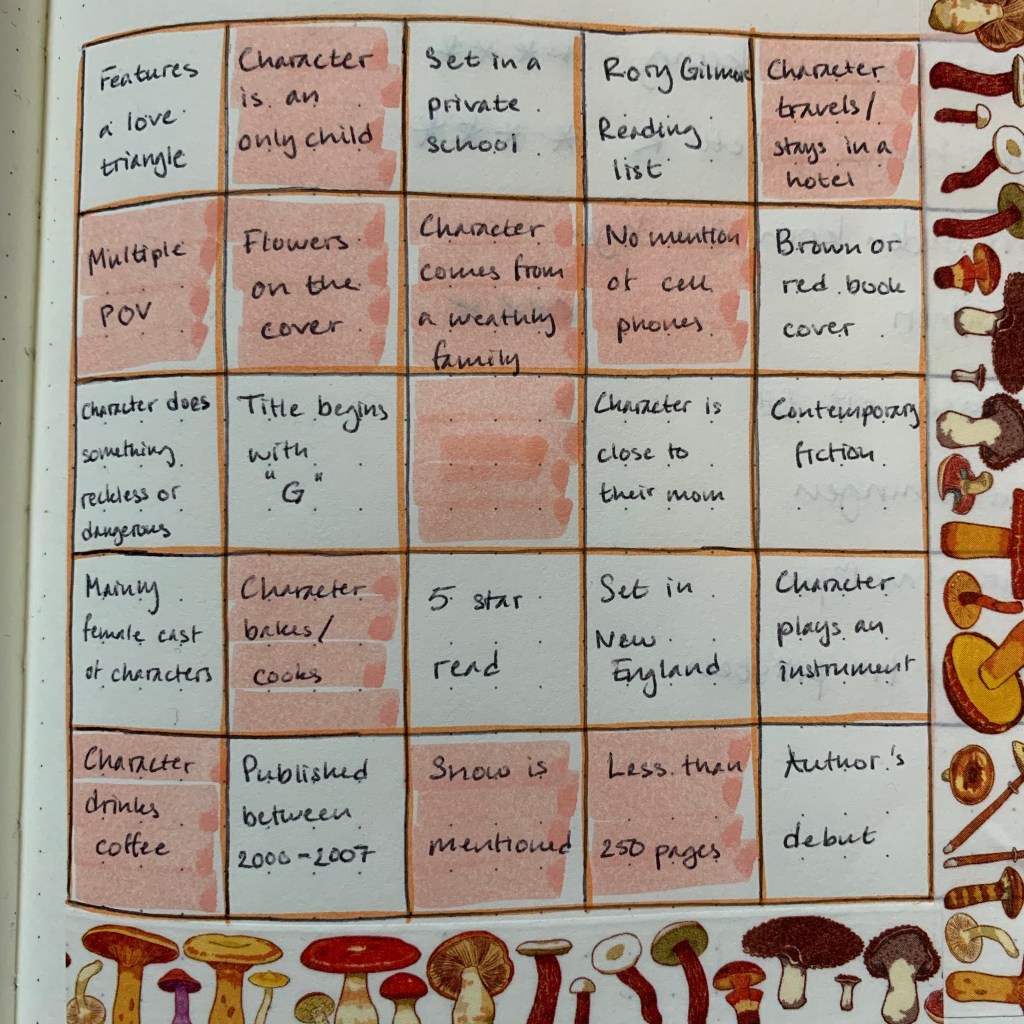 Features
a love
triangle
Character
is an
only child
Set in a
private
school
Rory Gilmore
Reading
list
Character
travels/
stays in a
hotel
Multiple
POV
Flowers
on the
cover
Character
comes from
a weathly
family
No mention
of cell
phones
Brown or
red book
cover
Character does
something
reckless or
dangerous
Title begins
with
"G"
Character is
close to
their mom
Contemporary
fiction
Mainly
female cast
of characters
Character
bakes/
cooks
5 star
read
Set in
New
England
Character
plays an
instrument
Character
drinks
coffee
Published
between
2000-2007
Snow is
mentioned
Less than
250 pages
Author's
debut